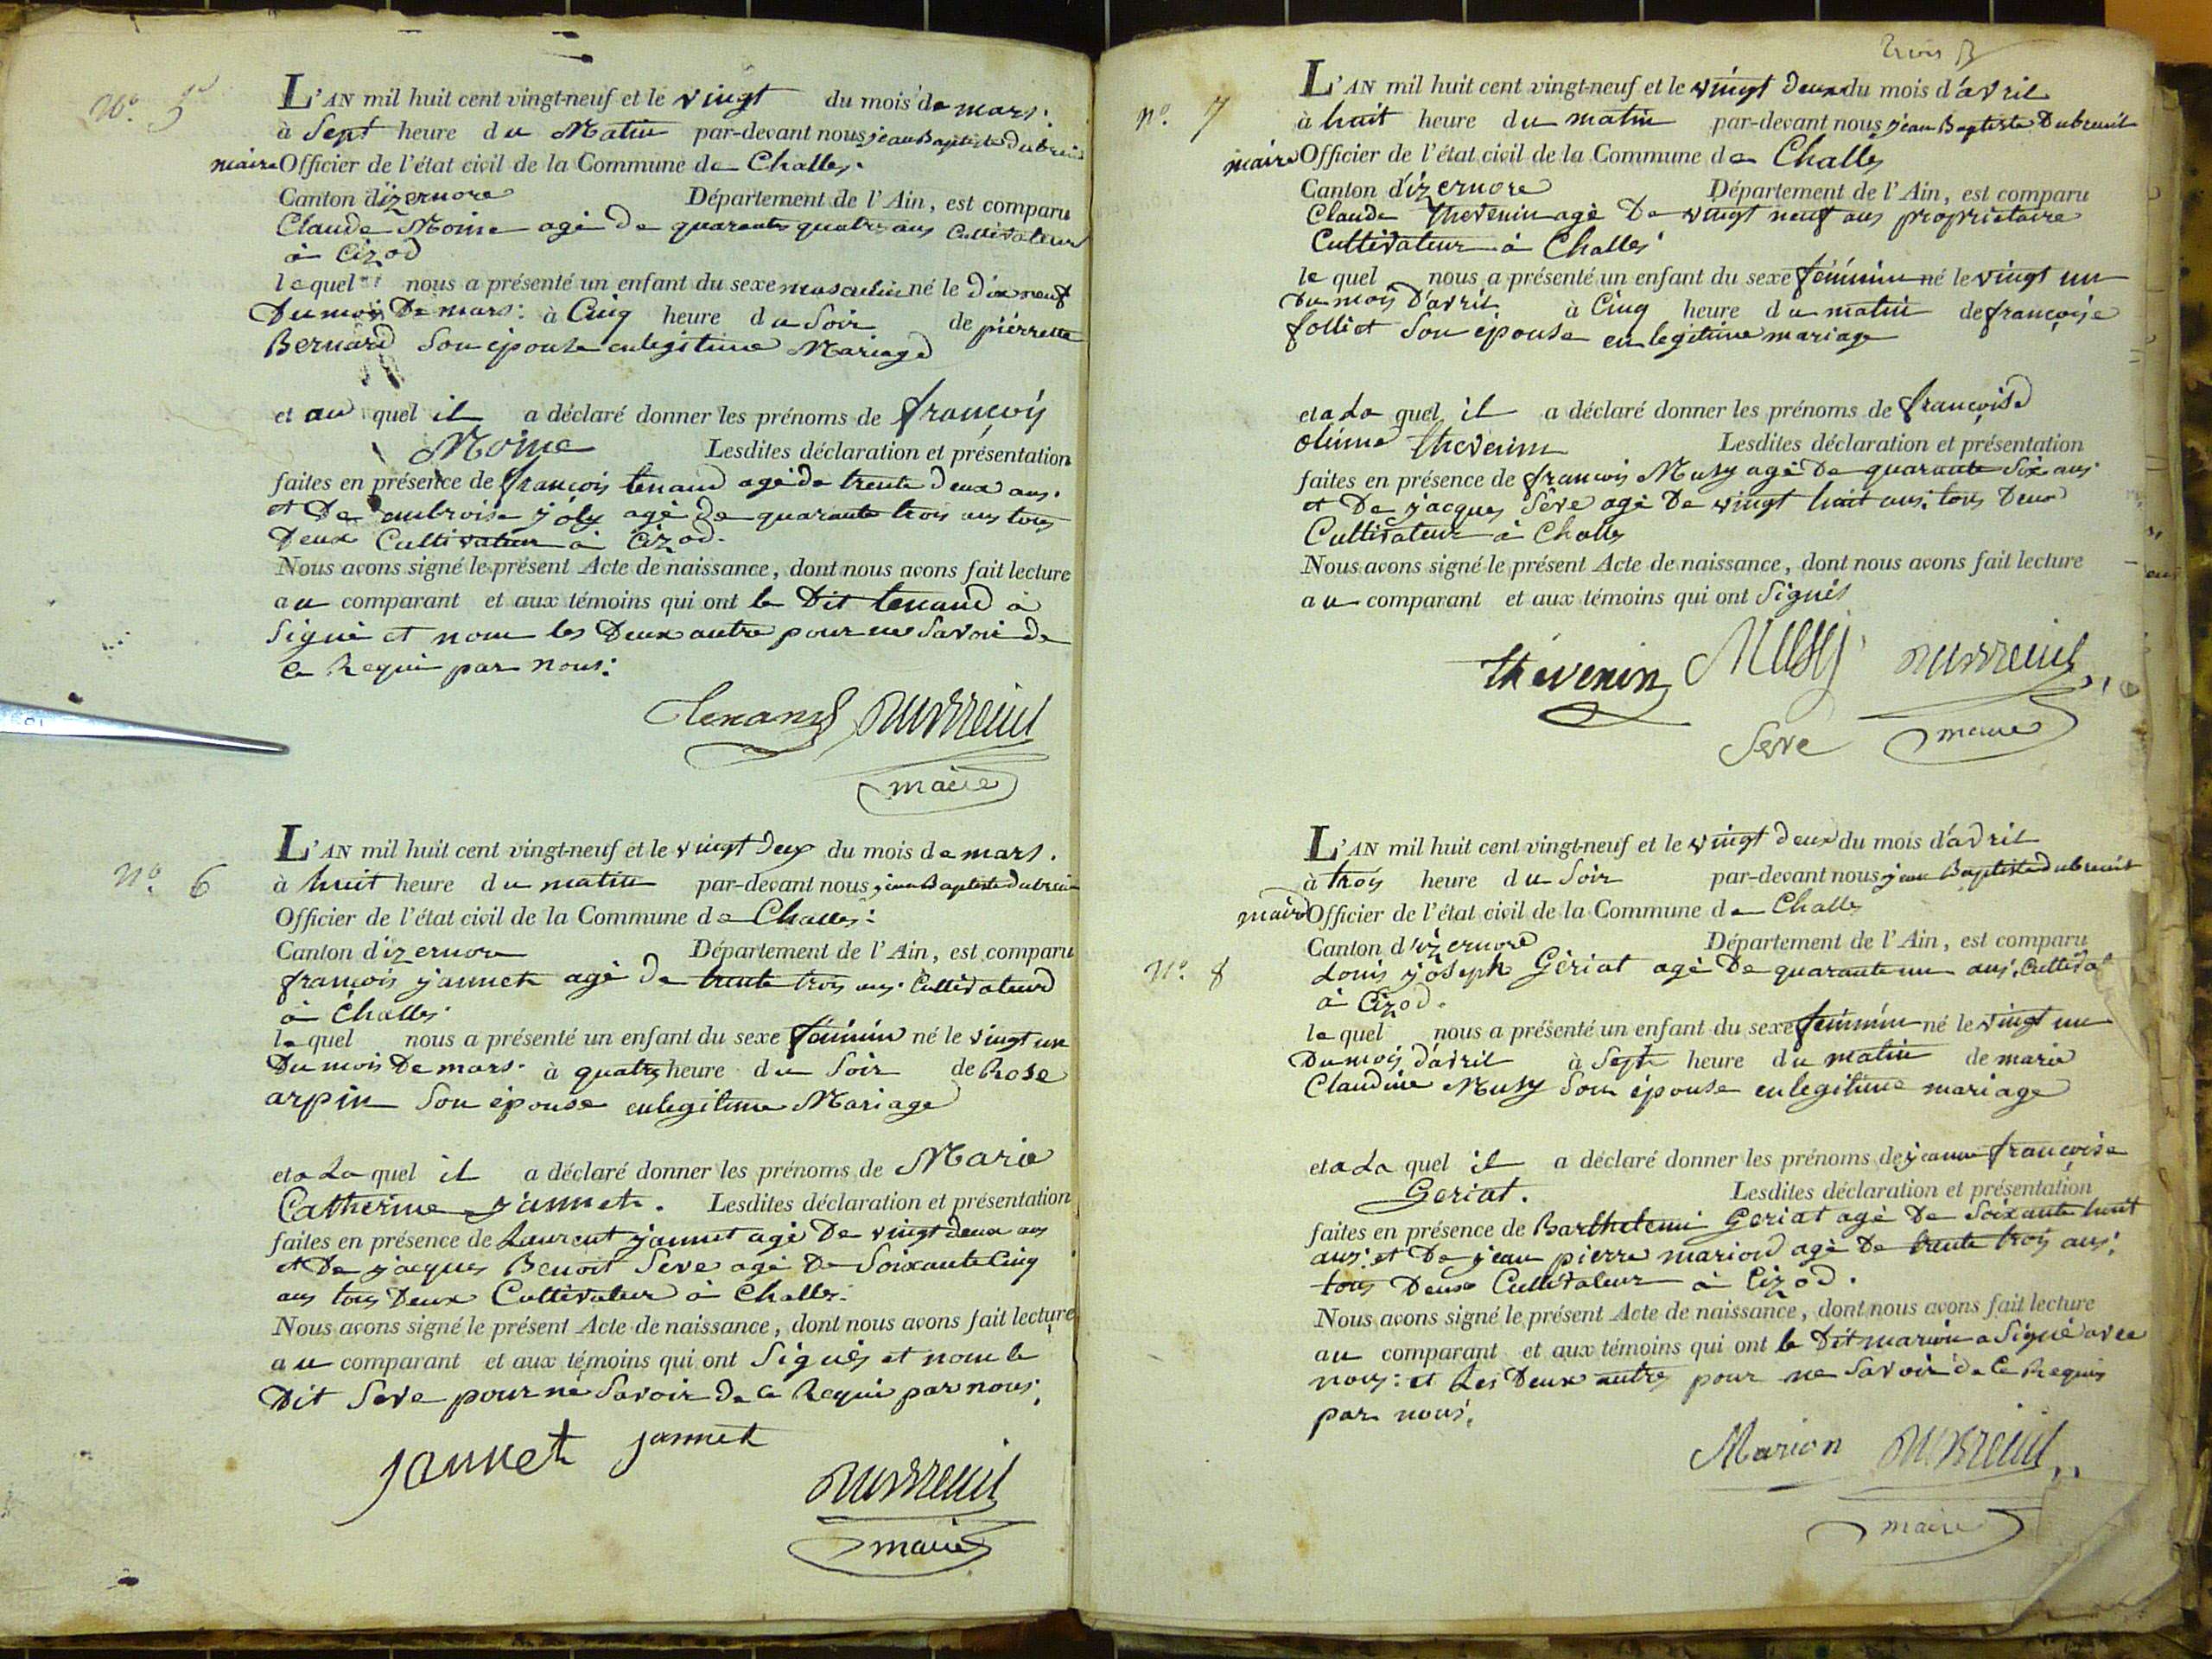 N.o 5
L'AN mil huit cent vingt-neuf et le vingt du mois de mars.
à Sept heure du Matin par-devant nous jean Baptiste dubreuil
maire Officier de l'état civil de la Commune de Challes.
Canton d'izernore Département de l'Ain, est comparu
Claude Moine agé de quarante quatre ans Cultivateur
à Cizod
lequel nous a présenté un enfant du sexe masculin né le dix neuf
Du mois De mars: à Cinq heure du Soir de pierrette
Bernard Son épouse en legitime Mariage
et au quel il a déclaré donner les prénoms de françois
Moine Lesdites déclaration et présentation
faites en présence de françois tenand agé de trente deux ans.
et De ambroise joly agé De quarante trois ans tous
Deux Cultivateur à Cizod.
Nous avons signé le présent Acte de naissance, dont nous avons fait lecture
au comparant et aux témoins qui ont le Dit tenand à
Signé et nom les Deux autre pour ne Savoir de
ce Requi par nous:
tenand Dubreuil
maire
N.o 6
L'AN mil huit cent vingt-neuf et le vingt deux du mois de mars.
à huit heure du matin par-devant nous jean Baptiste dubreuil
Officier de l'état civil de la Commune de Challes:
Canton d'izernore Département de l'Ain, est comparu
françois jannet agé de trente trois ans. Cultivateur
à Challes
lequel nous a présenté un enfant du sexe féminin né le vingt un
Du mois De mars. à quatre heure du Soir de Rose
arpin Son épouse en legitime Mariage
et a La quel il a déclaré donner les prénoms de Marie
Catherine jannet. Lesdites déclaration et présentation
faites en présence de Laurent jannet agé De vingt deux ans
et De jacques Benoit Seve agé De Soixante Cinq
ans tous Deux Cultivateur à Challes.
Nous avons signé le présent Acte de naissance, dont nous avons fait lecture
au comparant et aux témoins qui ont Signés et nom le
Dit Seve pour ne Savoir de ce Requi par nous.
jannet jannet
Dubreuil
maire
trois
n.o 7
L'AN mil huit cent vingt-neuf et le vingt deux du mois d'avril
à huit heure du matin par-devant nous jean Baptiste Dubreuil
maire Officier de l'état civil de la Commune de Challes
Canton d'izernore Département de l'Ain, est comparu
Claude thevenin agé De vingt neuf ans propriétaire
Cultivateur à Challes
lequel nous a présenté un enfant du sexe féminin né le vingt un
Du mois D'avril à Cinq heure du matin de françoise
folliet Son épouse en legitime mariage
et a La quel il a déclaré donner les prénoms de françoise
olime thevenin Lesdites déclaration et présentation
faites en présence de françois Musy agé De quarante Six ans
et De jacques Seve agé De vingt huit ans. tous Deux
Cultivateur à Challes
Nous avons signé le présent Acte de naissance, dont nous avons fait lecture
au comparant et aux témoins qui ont Signés
thévenin Musy Dubreuil
Seve maire
N.o 8
L'AN mil huit cent vingt-neuf et le vingt deux du mois d'avril
à trois heure du Soir par-devant nous jean Baptiste dubreuil
maire Officier de l'état civil de la Commune de Challes
Canton d'izernore Département de l'Ain, est comparu
Louis joseph Gériat agé De quarante un ans, Cultivat
à Cizod.
lequel nous a présenté un enfant du sexe féminin né le vingt un
Du mois d'avril à Sept heure du matin de marie
Claudine Musy Son épouse en legitime mariage
et a La quel il a déclaré donner les prénoms de jeanne françoise
Geriat. Lesdites déclaration et présentation
faites en présence de Barthelemi Geriat agé De Soixante huit
ans: et De jean pierre mariond agé De trente trois ans.
tous Deux Cultivateur à Cizod.
Nous avons signé le présent Acte de naissance, dont nous avons fait lecture
au comparant et aux témoins qui ont le Dit marion a Signé avec
nous: et Les Deux autres pour ne Savoir de ce Requis
par nous.
Marion Dubreuil
maire